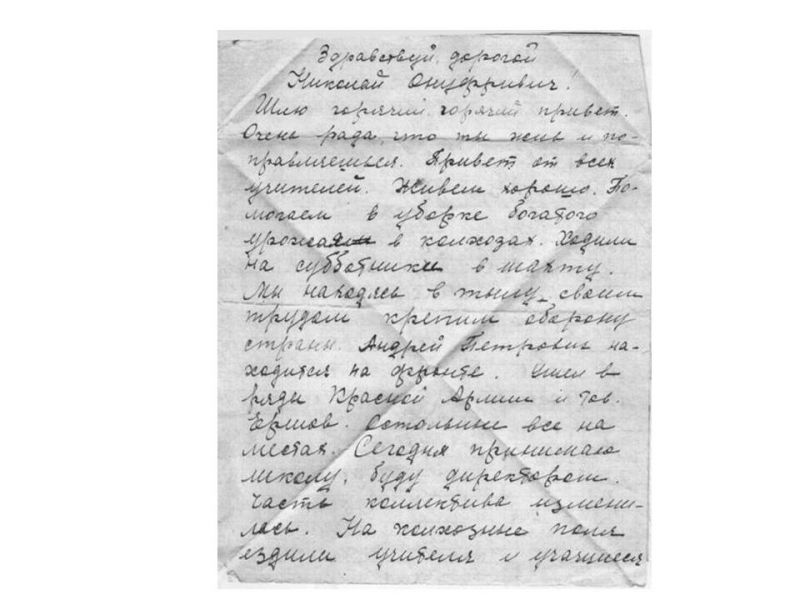 Здравствуй, дорогой
Николай Онуфриевич!
Шлю горячий, горячий привет.
Очень рада, что ты жив и по-
правляешься. Привет от всех
учителей. Живем хорошо. По-
могаем в уборке богатого
урожая в колхозах. Ходили
на субботники в шахту.
Мы находясь в тылу своим
трудом крепим оборону
страны. Андрей Петрович на-
ходится на фронте. Ушел в
ряды Красной Армии и тов.
Ершов. Остальные все на
местах. Сегодня принимаю
школу, буду директором.
Часть коллектива измени-
лась. На колхозные поля
ездили учителя и учащиеся